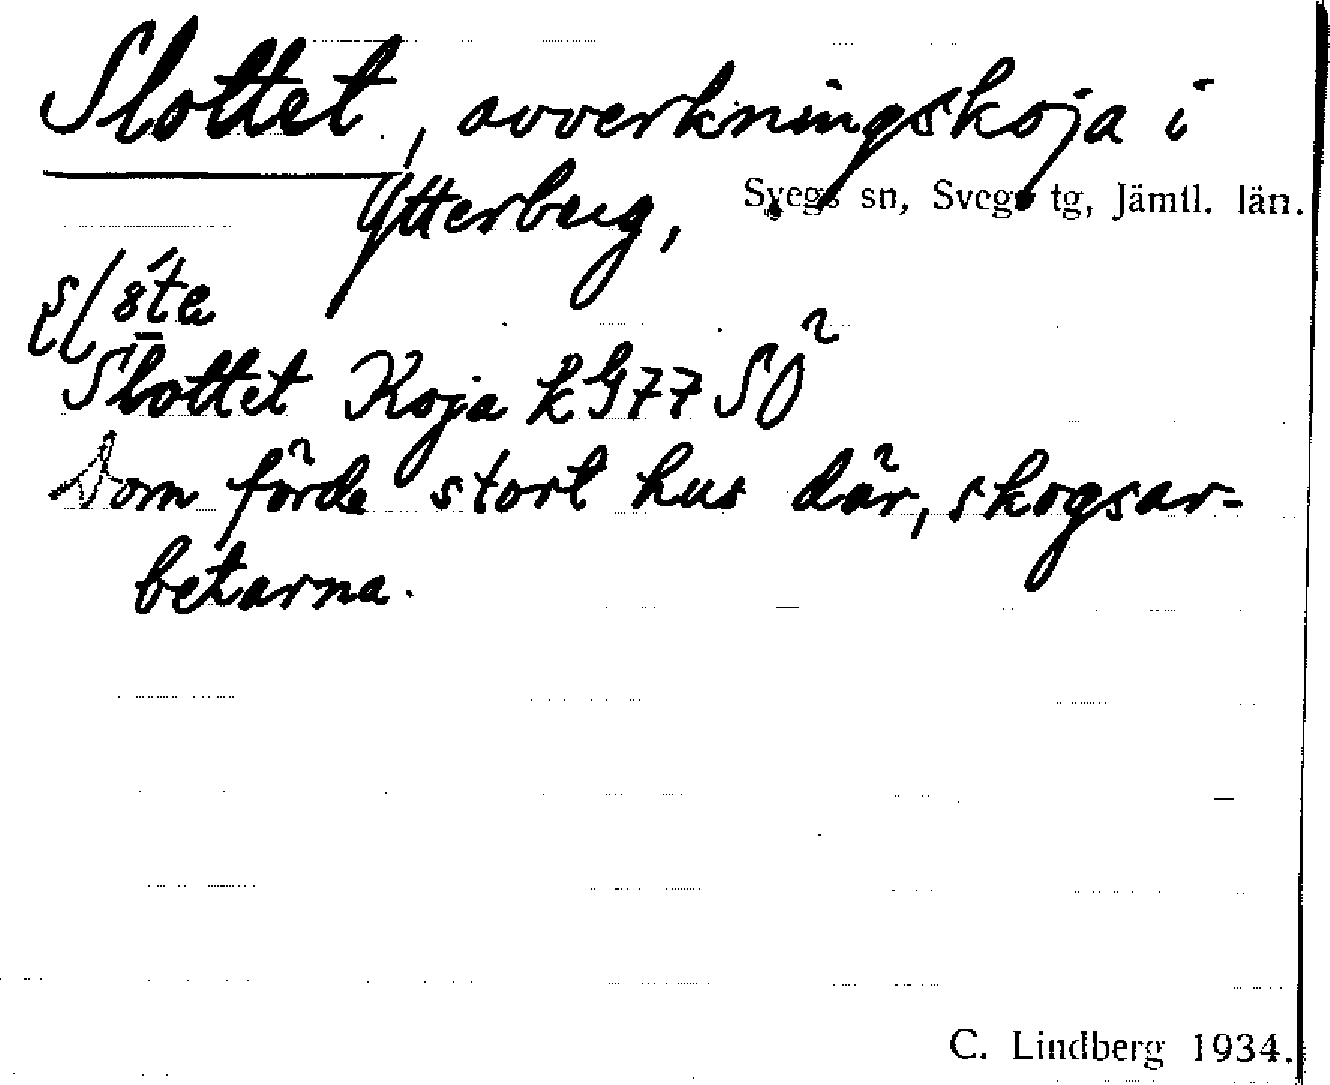 Slottet, avverkningskoja i
Ytterberg, Svegs sn, Svegs tg, Jämtl. län.
Slottet Koja kG77 SO
Dom förde stort hus där, skogsar-
betarna.
C. Lindberg 1934.